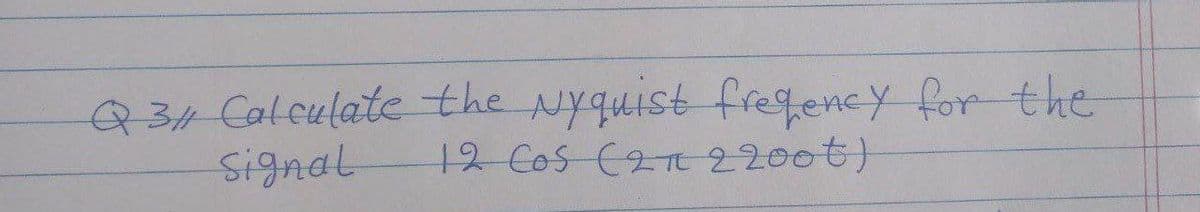 Q 3// Calculate the Nyquist freqency for the
signal 12 Cos (2π 2200t)